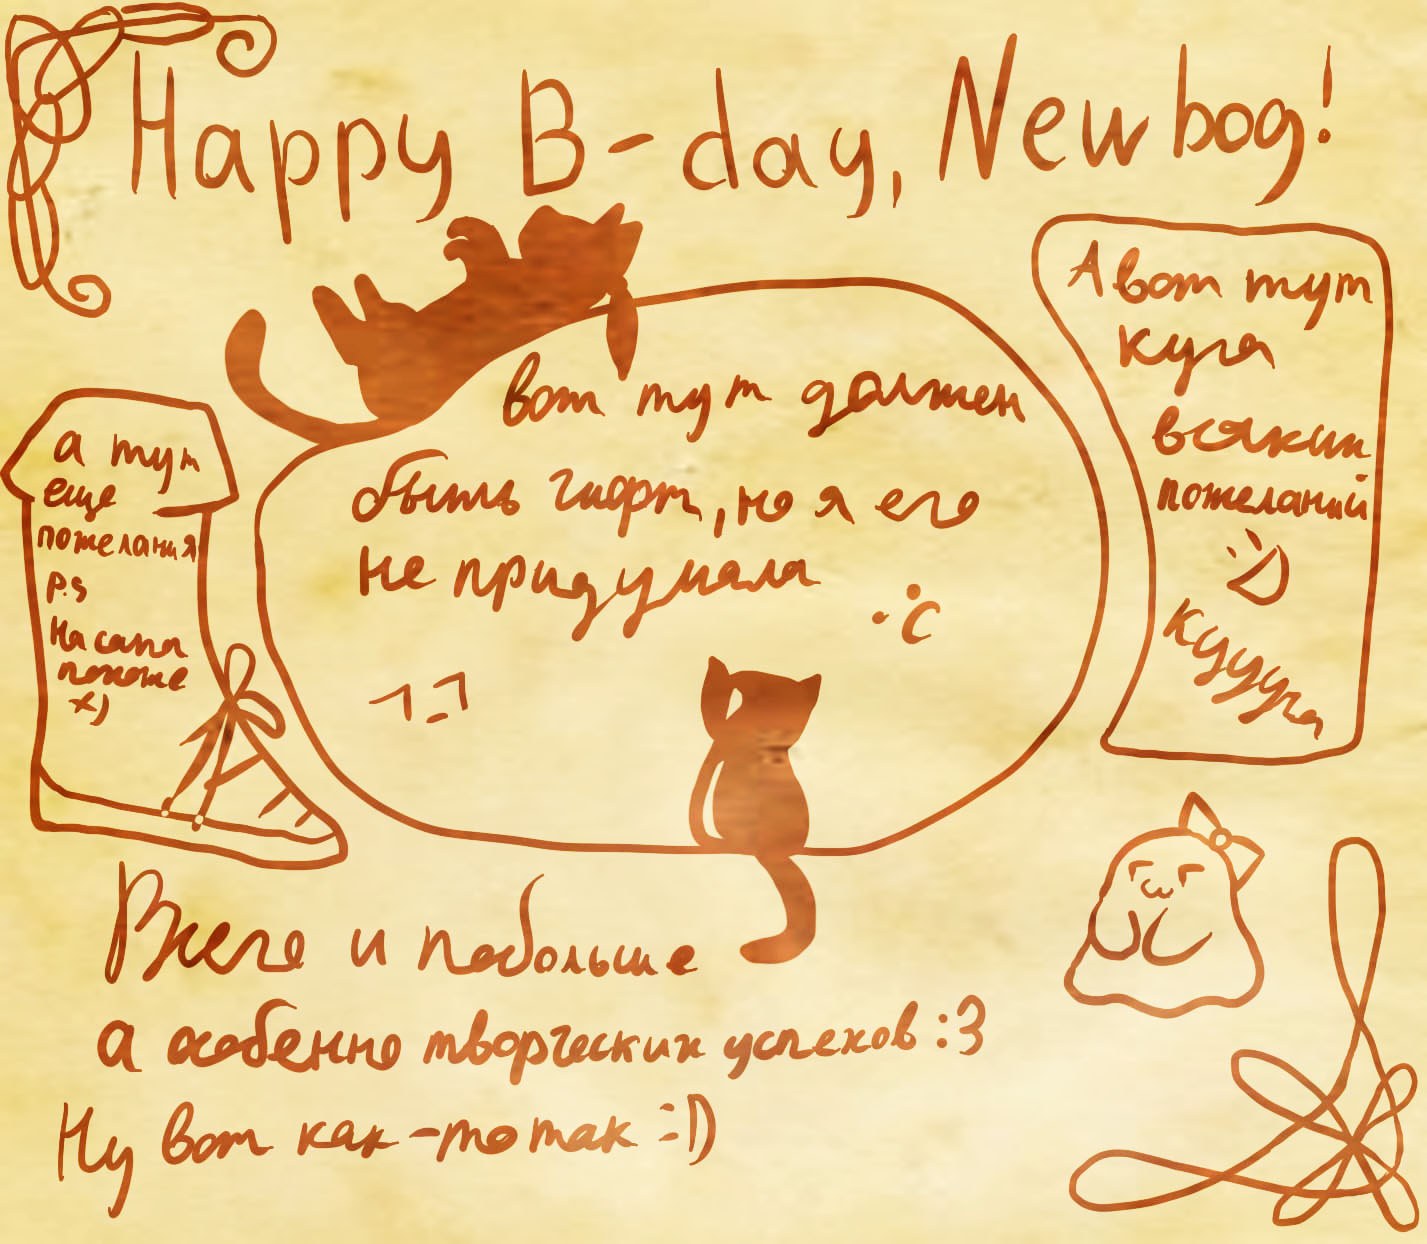 Happy B-day, Newbog!
А вот тут
куча
всяких
пожеланий
:D
Куууча
вот тут должен
быть гифт, но я его
не придумала
:с
а тут
еще
пожелания
P.S
На сапог
похоже
х)
Всего и побольше
а особенно творческих успехов :3
Ну вот как-то так :D